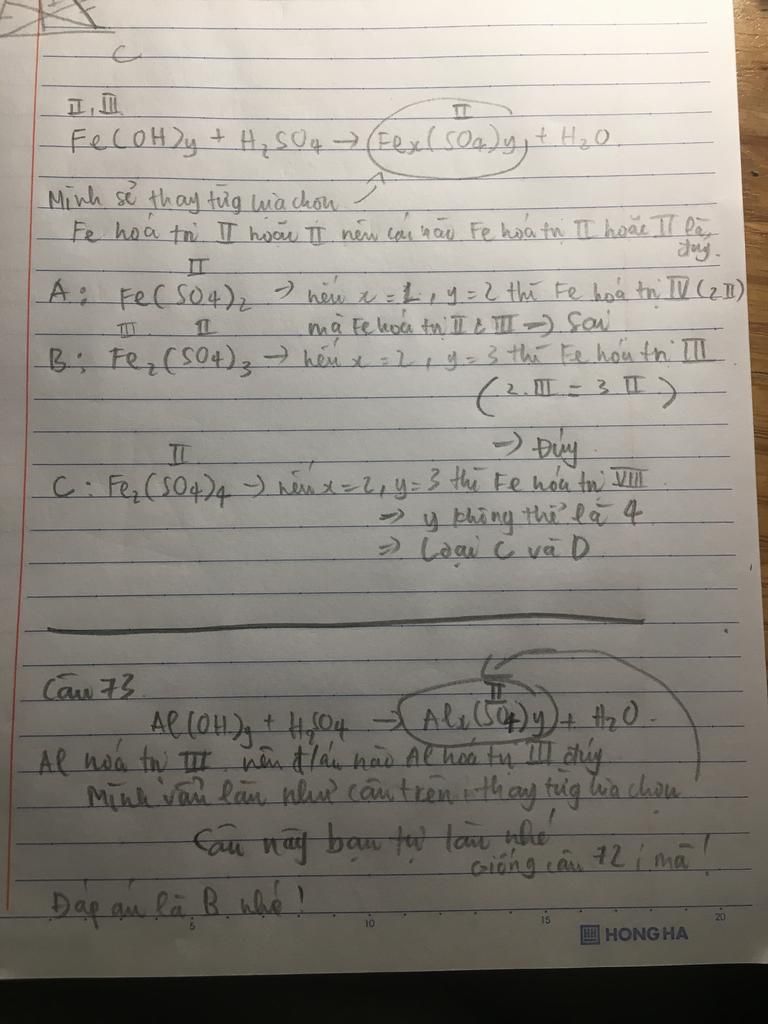 C
II, III II
Fe(OH)y + H2SO4 → Fex(SO4)y + H2O
Mình sẽ thay từg lựa chọn
Fe hoá trị II hoặc II nên cái nào Fe hoá trị II hoặc II là đúg.
II
A: Fe(SO4)2 → nếu x = 1, y = 2 thì Fe hoá trị IV (2 II)
III II mà Fe hoá trị II & III → Sai
B: Fe2(SO4)3 → nếu x = 2, y = 3 thì Fe hoá trị III
(2.III = 3 II)
→ Đúg
II
C: Fe2(SO4)4 → nếu x = 2, y = 3 thì Fe hóa trị VIII
⇒ y không thể là 4
⇒ Loại C và D
Câu 73
II
Al(OH)y + H2SO4 → Alx(SO4)y + H2O.
Al hoá trị III nên đ/án nào Al hoá trị III đúg
Mình vẫn làm như câu trên, thay từg lựa chọn
Câu này bạn tự làm nhé
Giống câu 72 í mà!
Đáp án là B nhé!
5 10 15 20
HONG HA